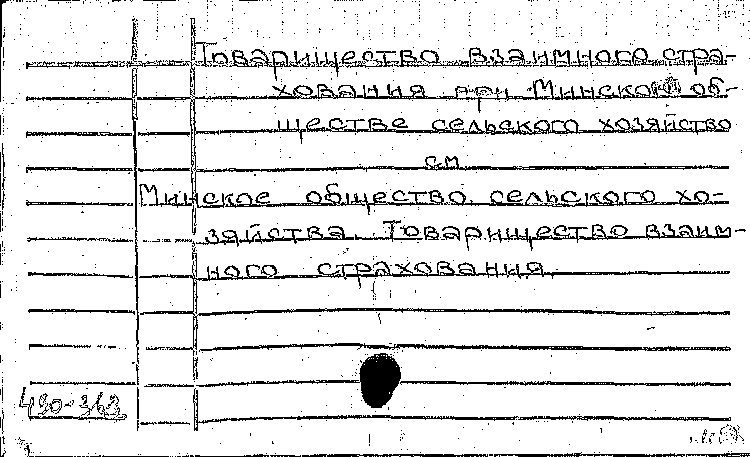 Товарищество взаимного стра-
хования при Минском об-
ществе сельского хозяйство
см.
Минское общество сельского хо-
зяйства. Товарищество взаим-
ного страхования.
490-363